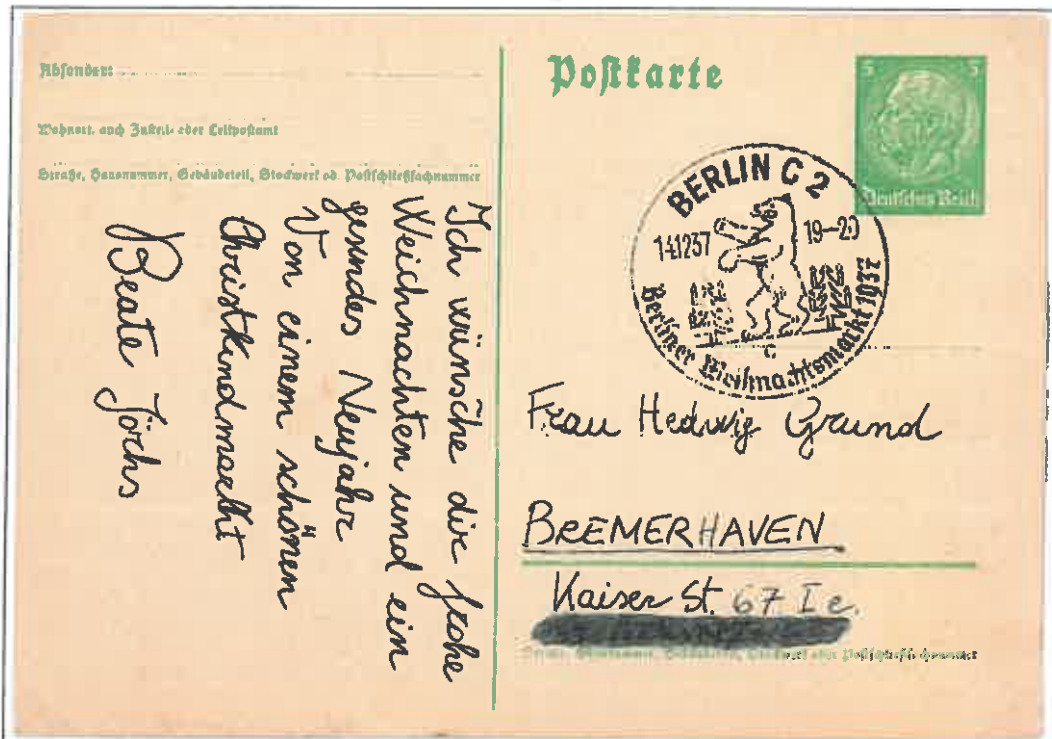 Absender:
Wohnort, auch Zustell- oder Leitpostamt
Straße, Hausnummer, Gebäudeteil, Stockwerk od. Postschließfachnummer
Ich wünsche dir frohe
Weichnachten und ein
gesundes Neujahr
Von einem schönen
Christkindmarkt
Beate Jörhs
Postkarte
5 5
Deutsches Reich
BERLIN C 2
14.12.37 19–20
c
Berliner Weihnachtsmarkt 1937
Frau Hedwig Grund
BREMERHAVEN
Kaiser St. 67 I e.
oder Postschließfachnummer